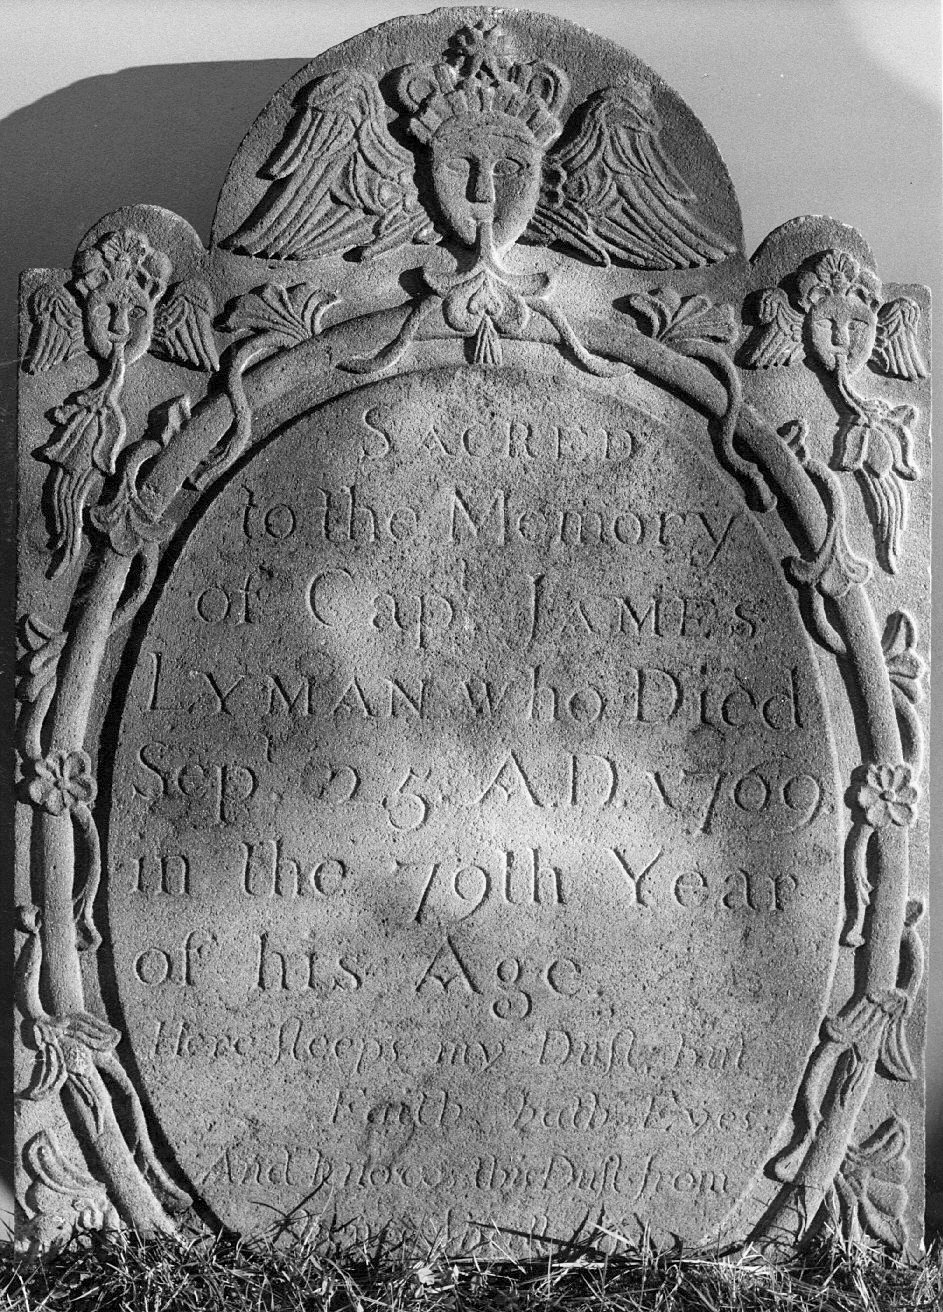 SACRED
to the Memory
of Cap.ᵗ JAMES
LYMAN who Died
Sep.ᵗ 25. A.D. 1769
in the 79th Year
of his Age.
Here ſleeps my Duſt, but
Faith hath Eyes
And knows this Duſt from